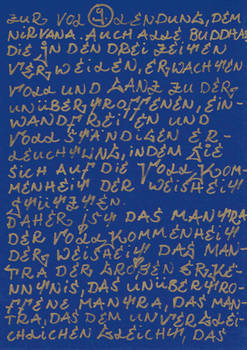 ZUR VOLLENDUNG, DEM
9.
NIRVANA. AUCH ALLE BUDDHAS
DIE IN DEN DREI ZEITEN
VERWEILEN, ERWACHTEN
VOLL UND GANZ ZU DER
UNÜBERTROFFENEN, EIN-
WANDFREIEN UND
VOLLSTÄNDIGEN ER-
LEUCHTUNG, INDEM SIE
SICH AUF DIE VOLLKOM-
MENHEIT DER WEISHEIT
STÜTZTEN.
DAHER IST DAS MANTRA
DER VOLLKOMMENHEIT
DER WEISHEIT, DAS MAN-
TRA DER GROßEN ERKE-
NNTNIS, DAS UNÜBERTRO-
FFENE MANTRA, DAS MAN-
TRA, DAS DEM UNVERGLEI-
CHLICHEN GLEICHT, DAS